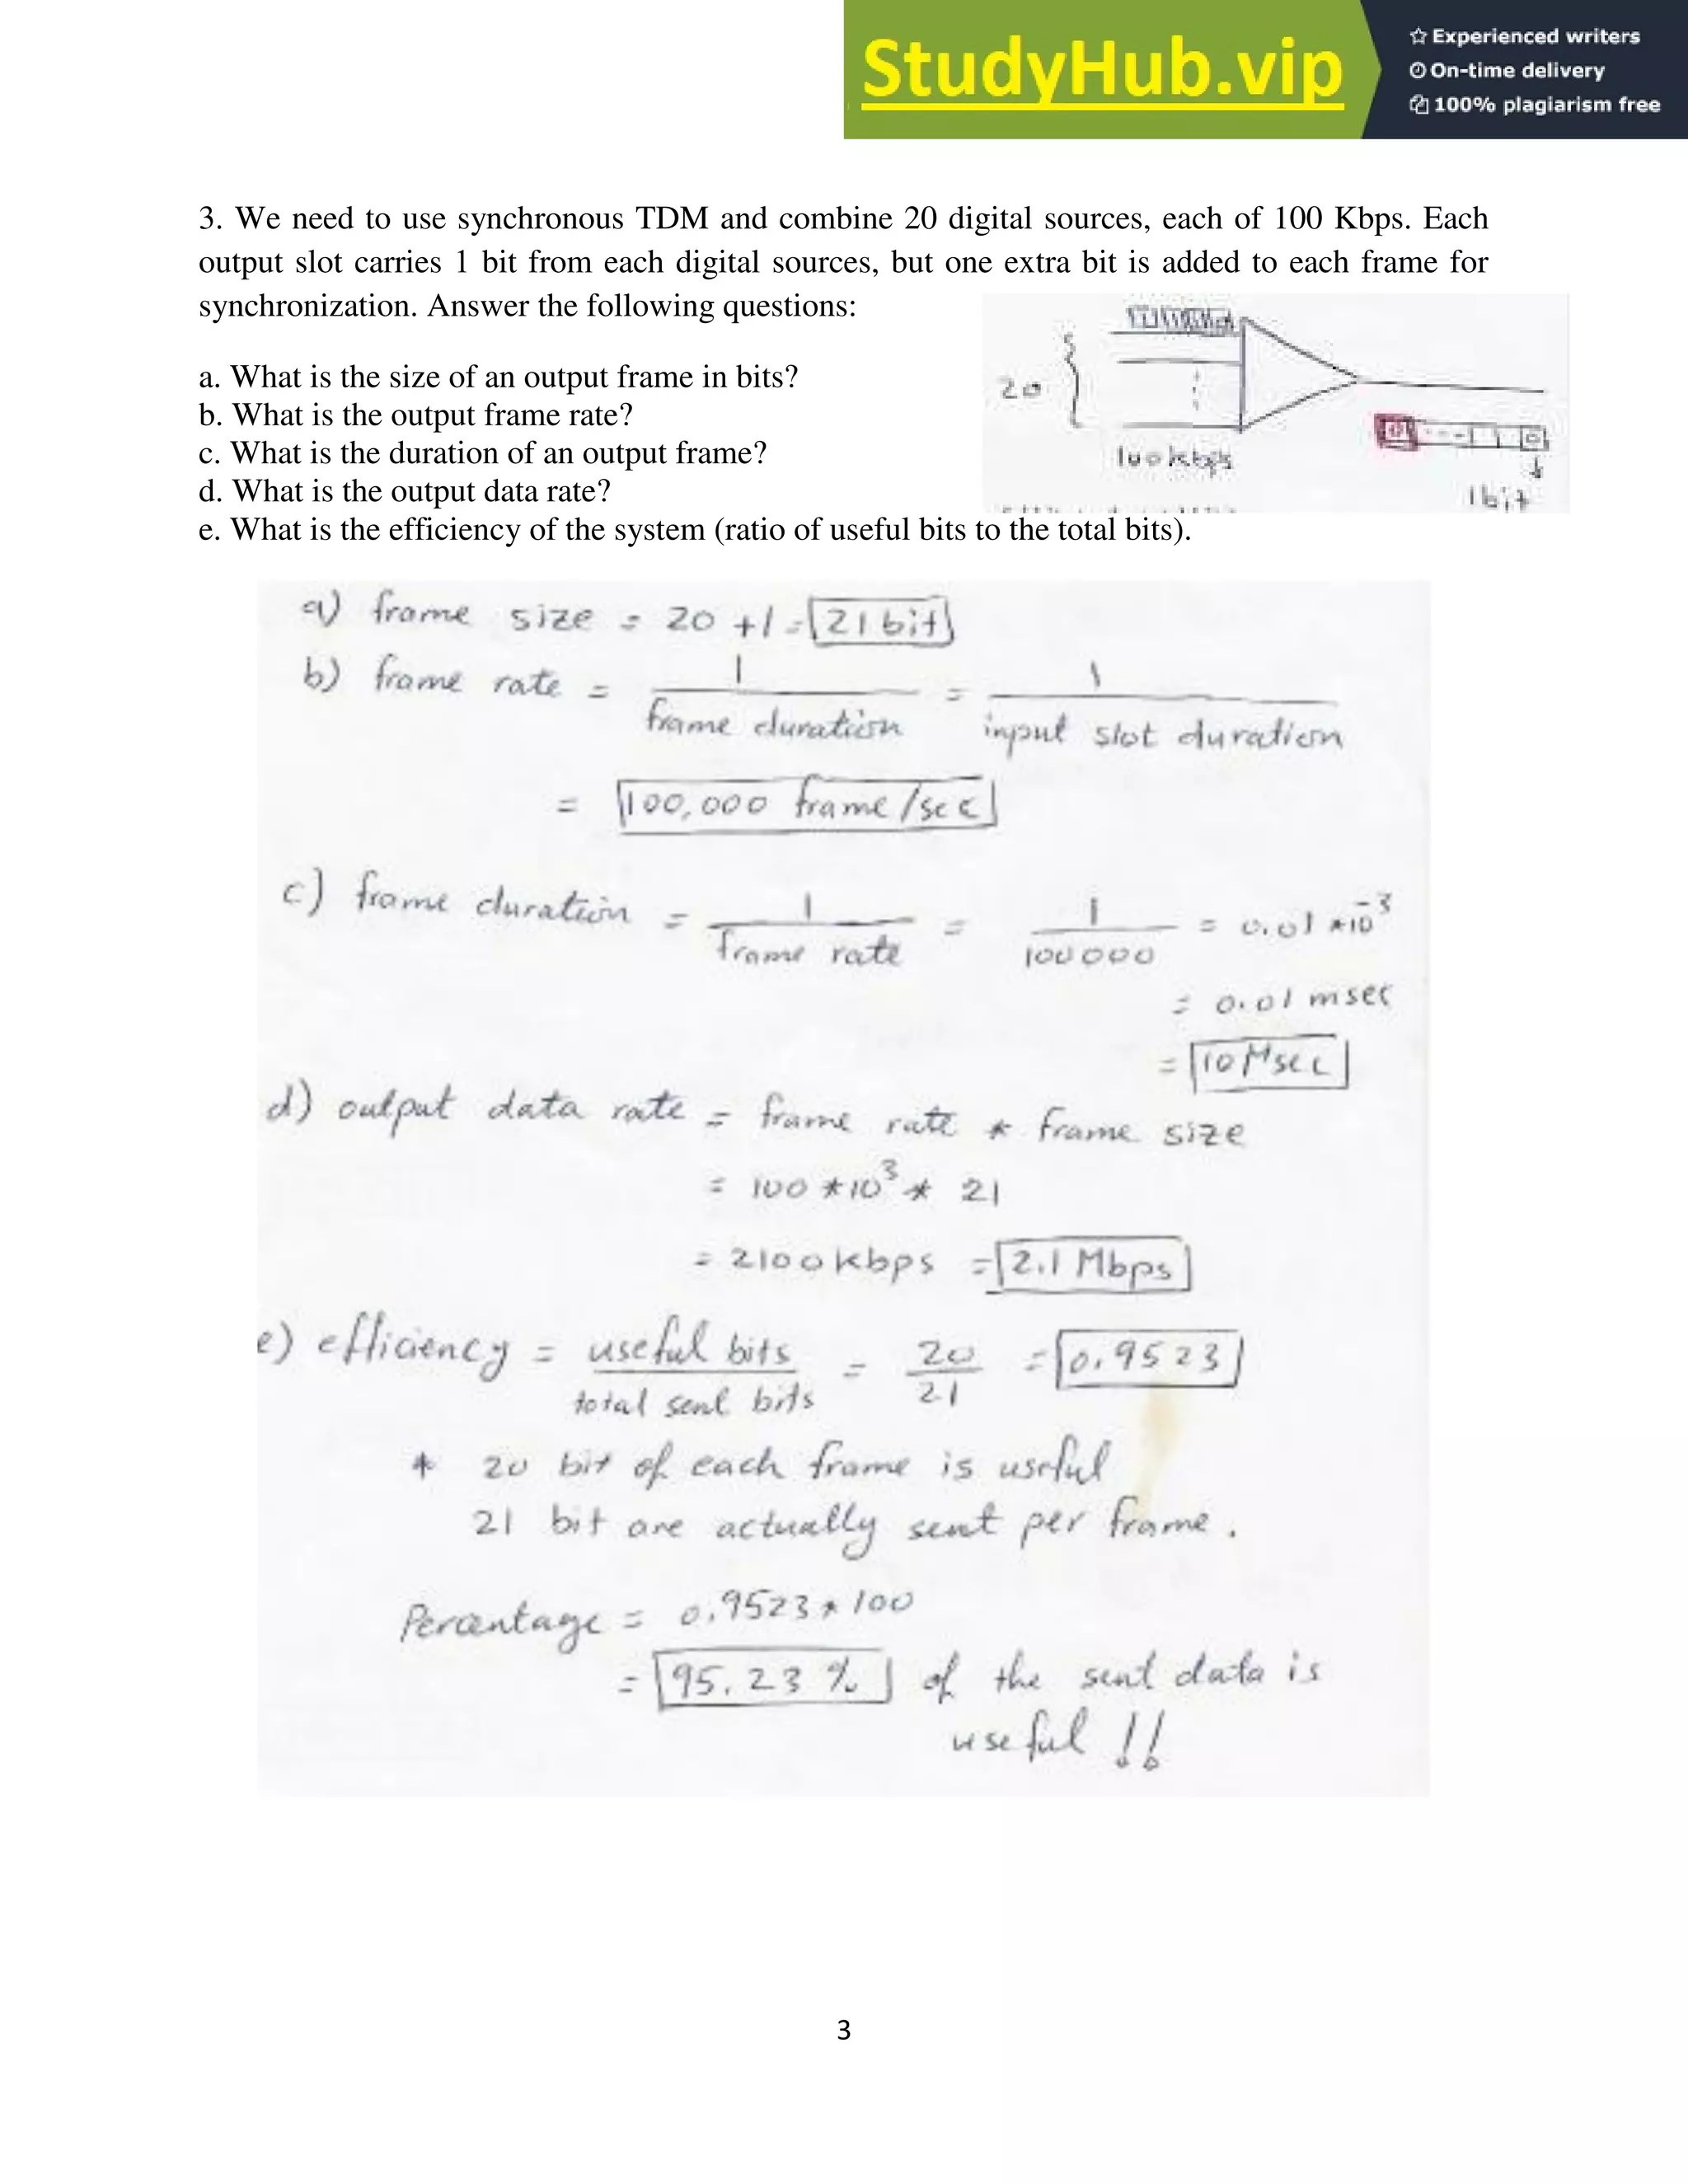 StudyHub.vip
Experienced writers
On-time delivery
100% plagiarism free
3. We need to use synchronous TDM and combine 20 digital sources, each of 100 Kbps. Each
output slot carries 1 bit from each digital sources, but one extra bit is added to each frame for
synchronization. Answer the following questions:
20
100 kbps
1 bit
a. What is the size of an output frame in bits?
b. What is the output frame rate?
c. What is the duration of an output frame?
d. What is the output data rate?
e. What is the efficiency of the system (ratio of useful bits to the total bits).
a) frame size = 20 +1 = 21 bit
b) frame rate = 1 / frame duration = 1 / input slot duration
= 100,000 frame/sec
c) frame duration = 1 / frame rate = 1 / 100000 = 0.01 *10^-3
= 0.01 msec
= 10 Msec
d) output data rate = frame rate * frame size
= 100 *10^3 * 21
= 2100 kbps = 2.1 Mbps
e) efficiency = useful bits / total sent bits = 20 / 21 = 0.9523
* 20 bit of each frame is useful
21 bit are actually sent per frame.
Percentage = 0.9523 * 100
= 95.23 % of the sent data is
useful !!
3